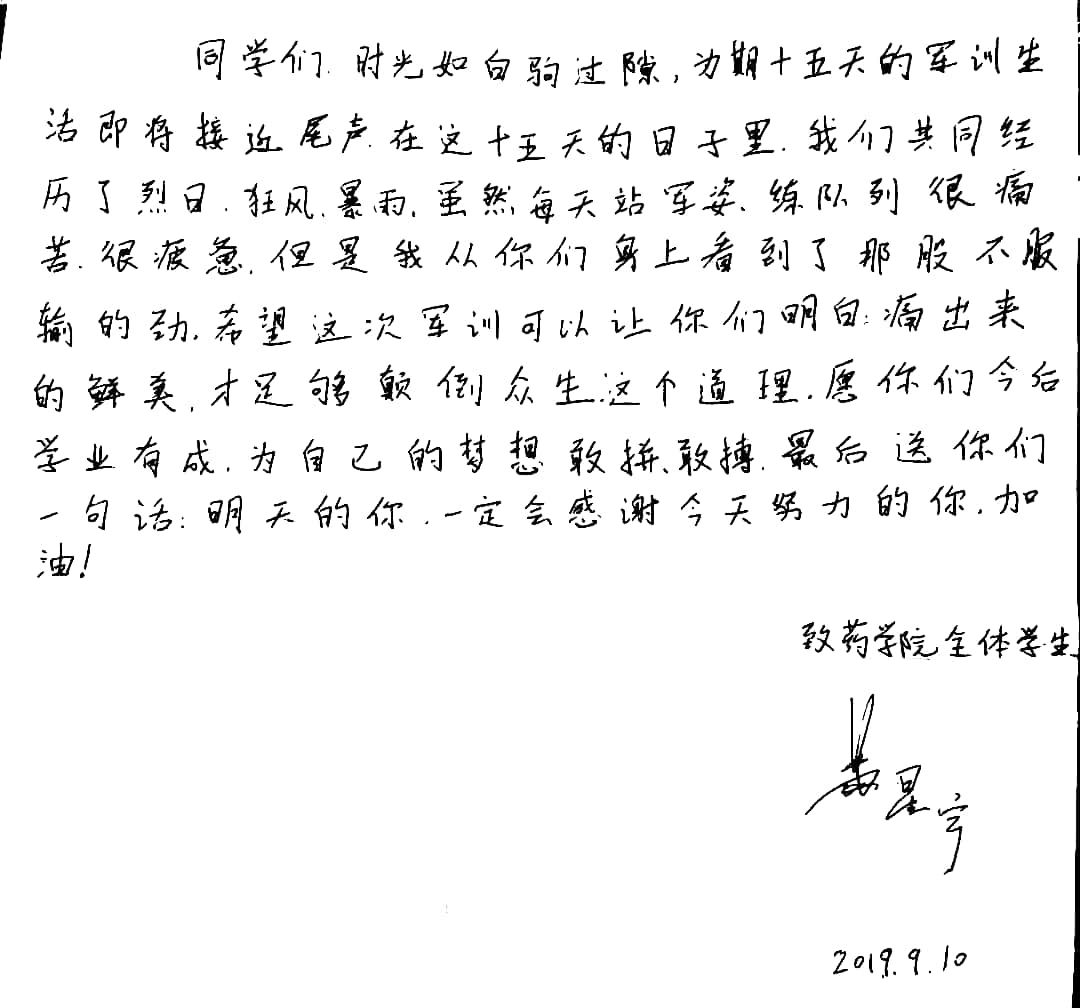 同学们.时光如白驹过隙,为期十五天的军训生
活即将接近尾声.在这十五天的日子里.我们共同经
历了烈日.狂风.暴雨.虽然每天站军姿、练队列很痛
苦.很疲惫.但是我从你们身上看到了那股不服
输的劲.希望这次军训可以让你们明白:痛出来
的鲜美,才足够颠倒众生.这个道理.愿你们今后
学业有成.为自己的梦想敢拼、敢搏.最后送你们
一句话:明天的你.一定会感谢今天努力的你.加
油!
致药学院全体学生
星宇
2019.9.10